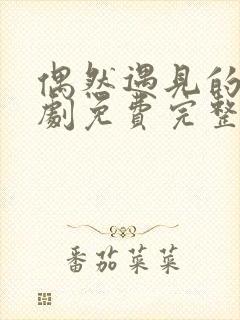 偶然遇见的
劇免費完整
番茄菜菜